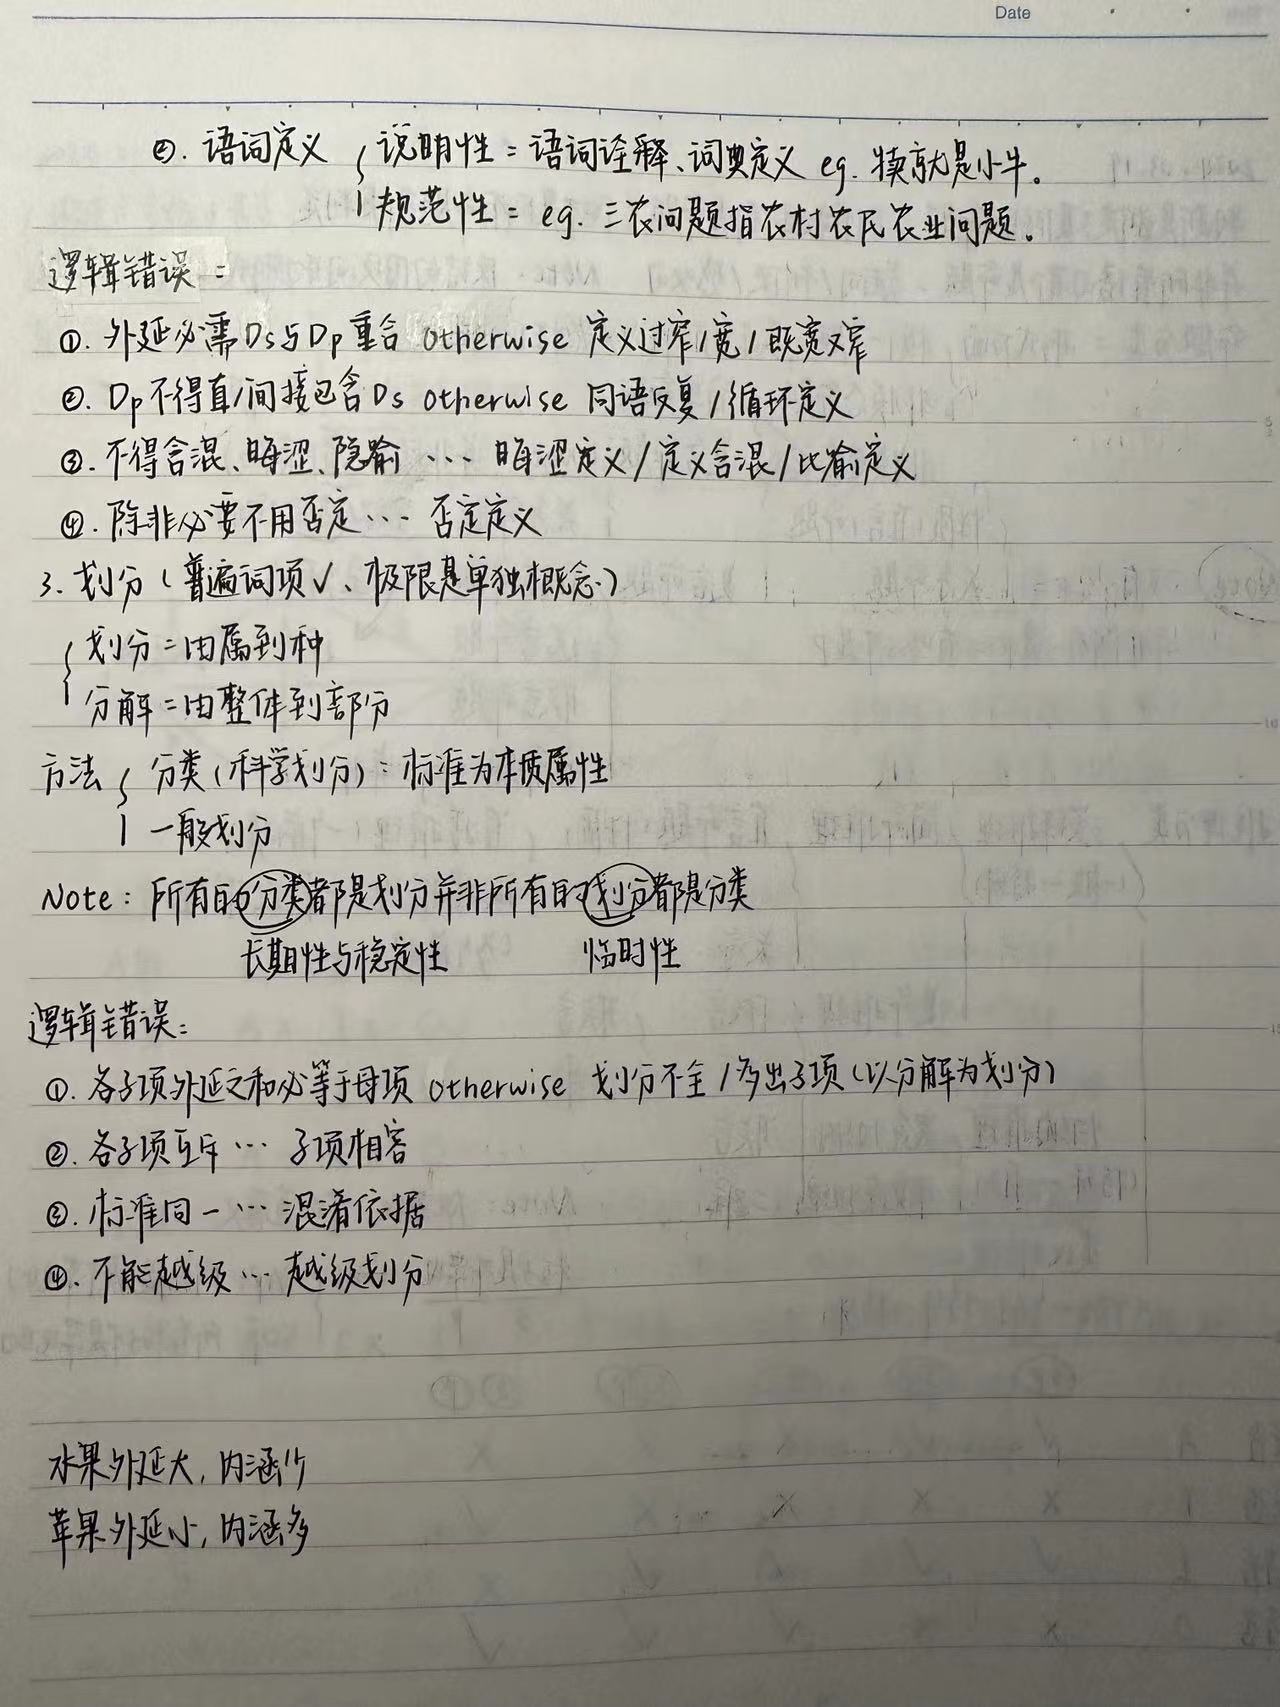 Date
②. 语词定义 { 说明性：语词诠释、词典定义 eg. 犊就是小牛。
规范性：eg. 三农问题指农村农民农业问题。
逻辑错误：
①. 外延必需Ds与Dp重合 otherwise 定义过窄/宽/既宽又窄
②. Dp不得直/间接包含Ds otherwise 同语反复/循环定义
③. 不得含混、晦涩、隐喻 … 晦涩定义/定义含混/比喻定义
④. 除非必要不用否定… 否定定义
3. 划分（普遍词项✓、极限是单独概念）
{ 划分：由属到种
分解：由整体到部分
方法 { 分类（科学划分）：标准为本质属性
一般划分
Note：所有的分类都是划分并非所有的划分都是分类
长期性与稳定性 临时性
逻辑错误：
①. 各子项外延之和必等于母项 otherwise 划分不全/多出子项（以分解为划分）
②. 各子项互斥 … 子项相容
③. 标准同一 … 混淆依据
④. 不能越级 … 越级划分
水果外延大，内涵少
苹果外延小，内涵多